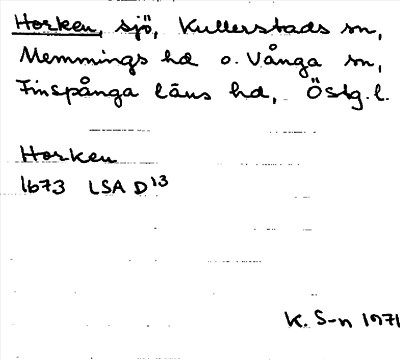 Horken, sjö, Kullerstads sn,
Memmings hd o. Vånga sn,
Finspånga läns hd, Östg.l.
Horken
1673 LSA D13
K. S-n 1971